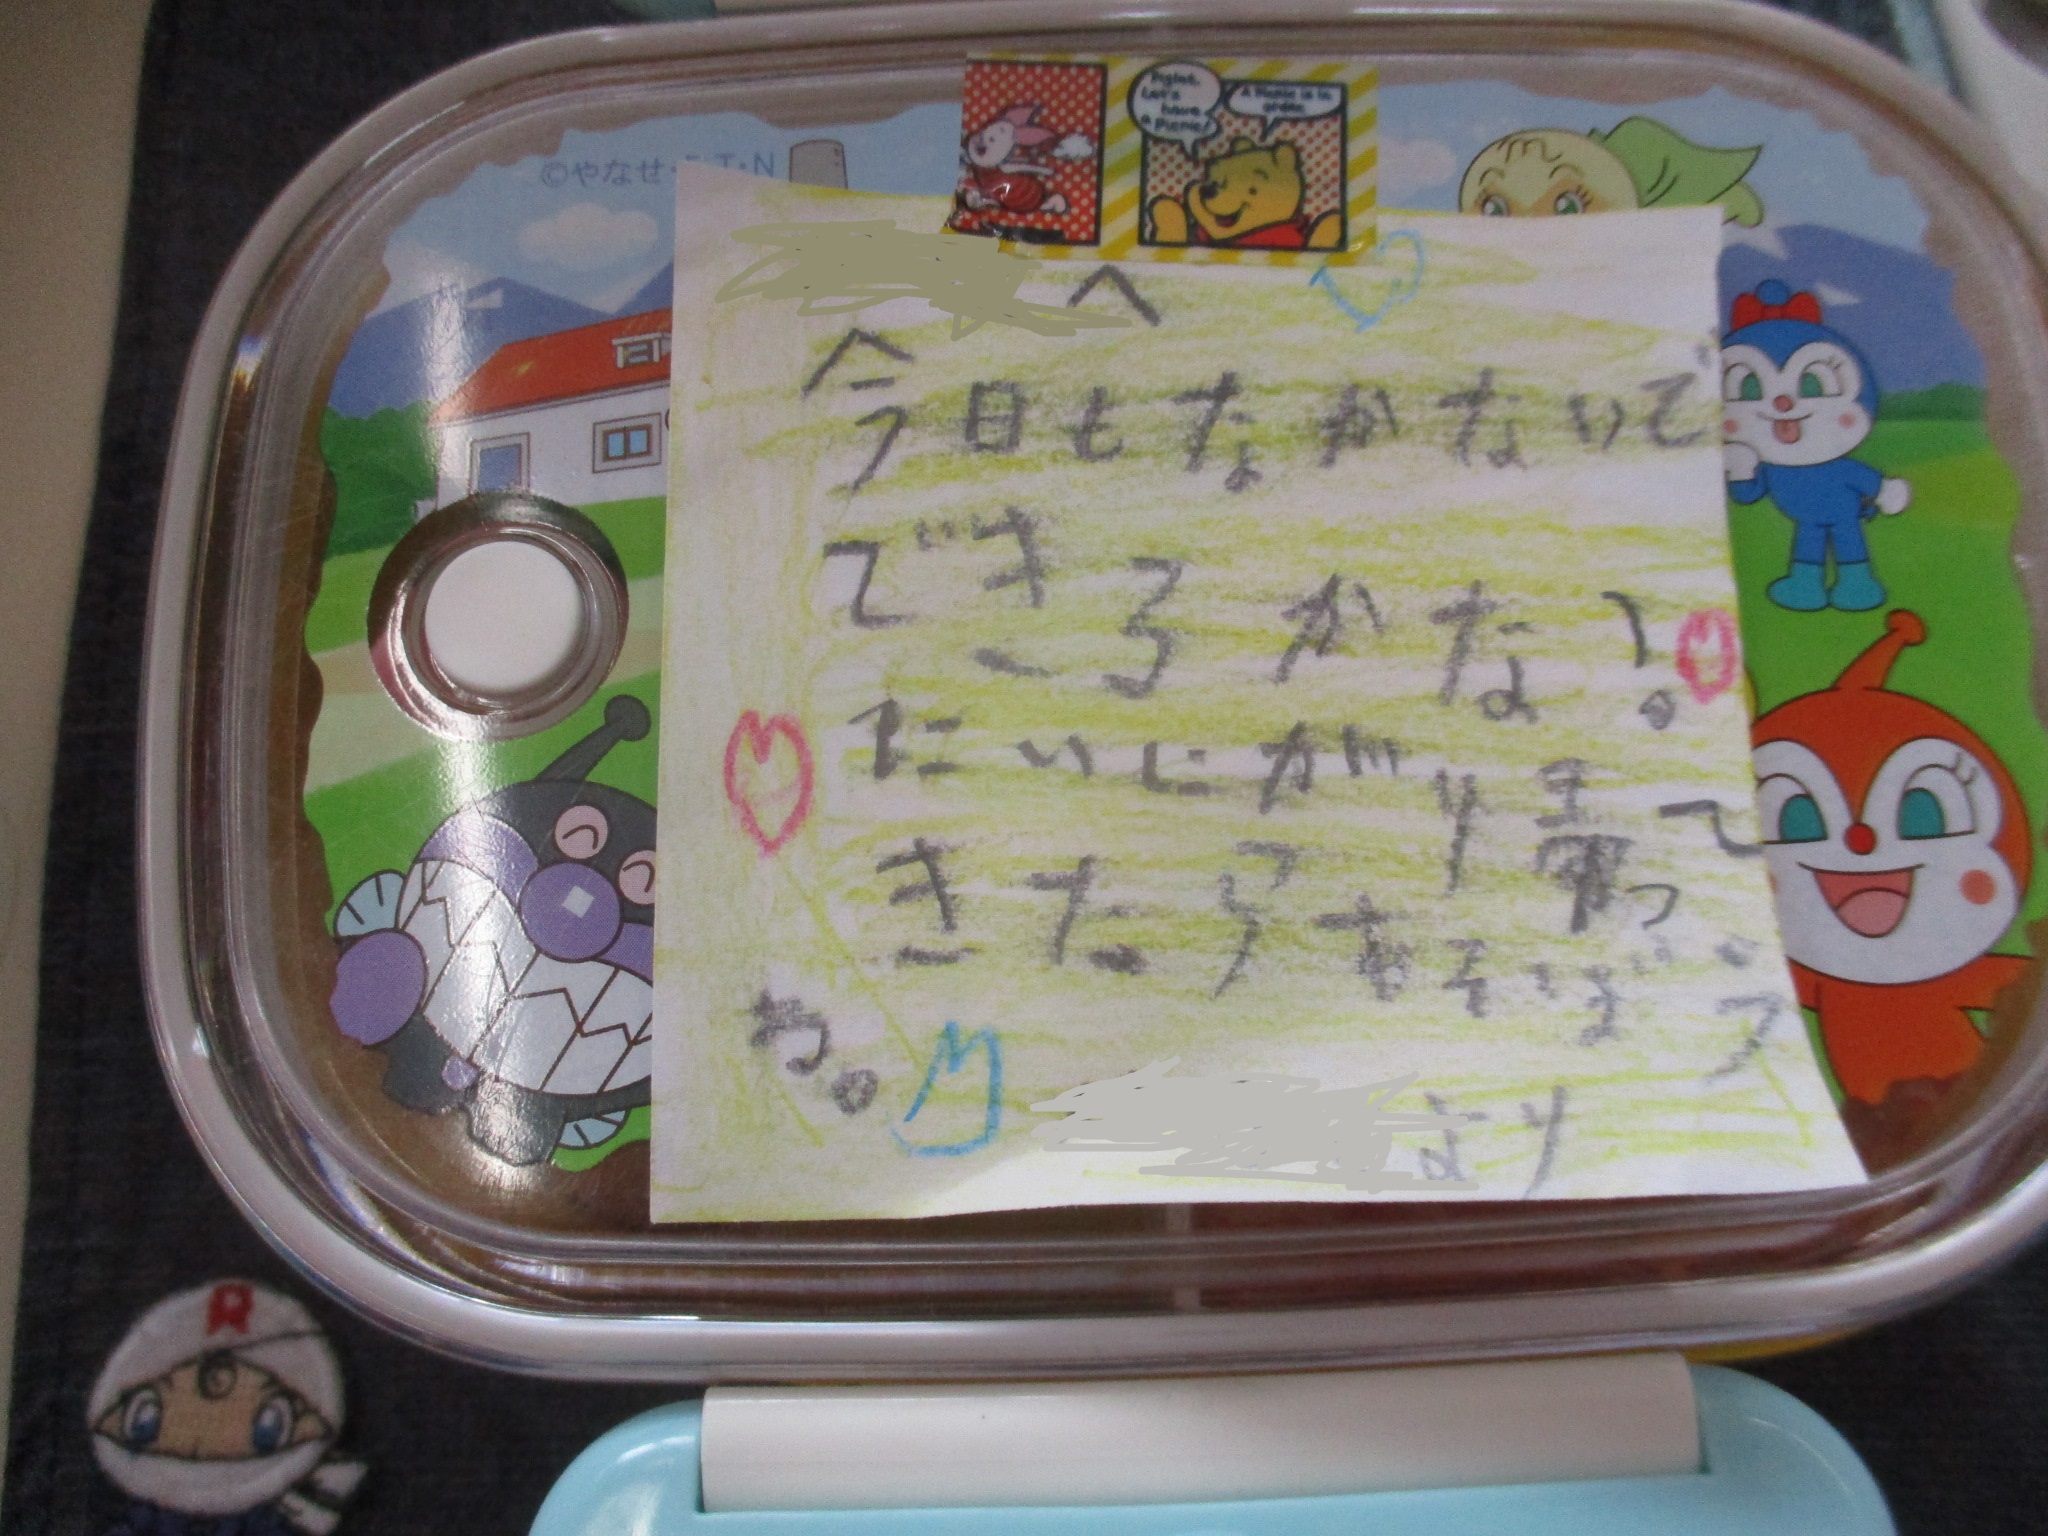 ©やなせ・ T・N
Piglet,
Let's
have
a Picnic!
A Picnic is in
order.
へ
今日もなかないで
できるかな？
にいにが帰って
きたらあそぼう
ね。
より